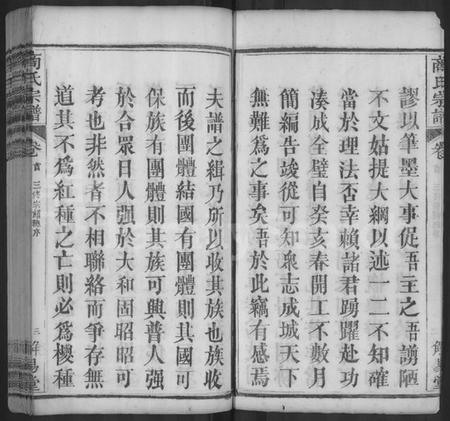 謬以筆墨大事促吾主之吾謭陋
不文姑提大綱以述一二不知確
當於理法否幸賴諸君踴躍赴功
湊成全璧自癸亥春開工不數月
簡編告竣從可知衆志成城天下
無難爲之事矣吾於此竊有感焉
夫譜之緝乃所以收其族也族收
而後團體結國有團體則其國可
保族有團體則其族可興普人强
於合衆日人强於大和固昭昭可
考也非然者不相聯絡而爭存無
道其不爲紅種之亡則必爲櫻種
商氏宗譜
卷
首
三
解易堂
商氏宗譜
卷